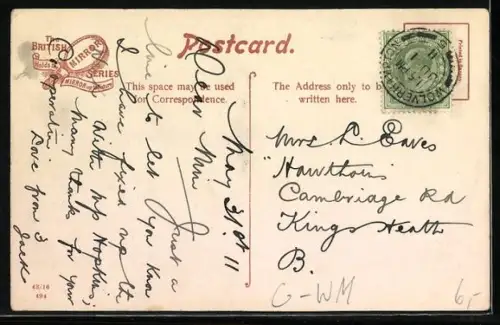 The
BRITISH
Holds the
MIRROR
MIRROR of Nature
SERIES
Postcard.
This space may be used
for Correspondence.
The Address only to be
written here.
WOLVERHAMPTON
May 31st 11
Dear Min Just a
line to let you know
I have fixed up the
with Mr Hopkins,
Many thanks for your
Cooperation.
Love from
Jack
Mrs L. Eaves
"Hawthorn
Cambridge Rd
Kings Heath
B.
G-WM
6,-